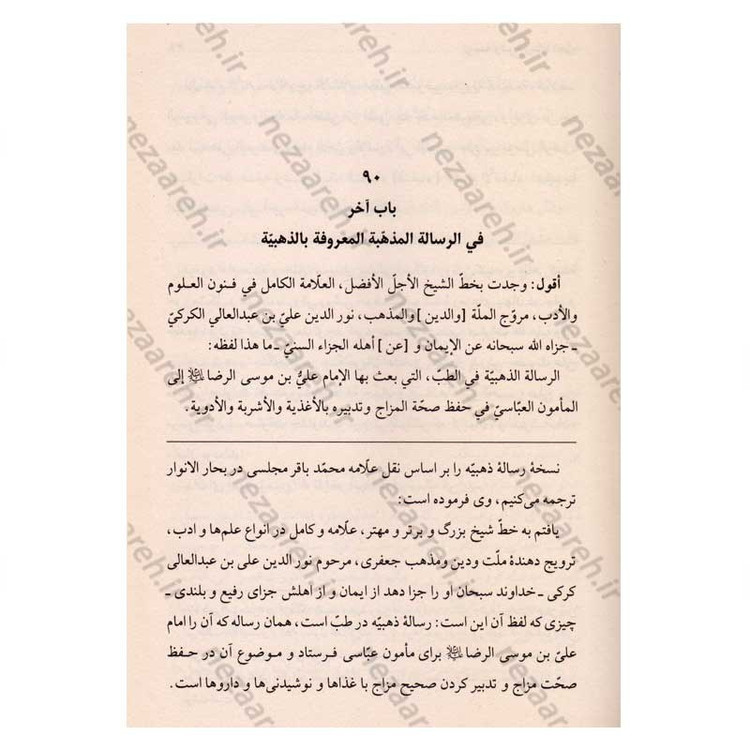 ۹۰
باب آخر
في الرسالة المذهّبة المعروفة بالذهبيّة
أقول: وجدت بخطّ الشيخ الأجلّ الأفضل، العلّامة الكامل في فنون العلوم
والأدب، مروّج الملّة [والدين] والمذهب، نور الدين عليّ بن عبدالعالي الكركيّ
ـ جزاه الله سبحانه عن الإيمان و [عن] أهله الجزاء السنيّ ـ ما هذا لفظه:
الرسالة الذهبيّة في الطبّ، التي بعث بها الإمام عليُّ بن موسى الرضا إلى
المأمون العبّاسيّ في حفظ صحّة المزاج وتدبيره بالأغذية والأشربة والأدوية.
نسخهٔ رسالهٔ ذهبیّه را بر اساس نقل علّامه محمّد باقر مجلسی در بحار الانوار
ترجمه می‌کنیم، وی فرموده است:
یافتم به خطّ شیخ بزرگ و برتر و مهتر، علّامه و کامل در انواع علم‌ها و ادب،
ترویج دهندهٔ ملّت ودین ومذهب جعفری، مرحوم نور الدین علی بن عبدالعالی
کرکی ـ خداوند سبحان او را جزا دهد از ایمان و از اهلش جزای رفیع و بلندی ـ
چیزی که لفظ آن این است: رسالهٔ ذهبیّه در طبّ است، همان رساله که آن را امام
علیّ بن موسی الرضا برای مأمون عبّاسی فرستاد و موضوع آن در حفظ
صحّت مزاج و تدبیر کردن صحیح مزاج با غذاها و نوشیدنی‌ها و داروها است.
nezaareh.ir